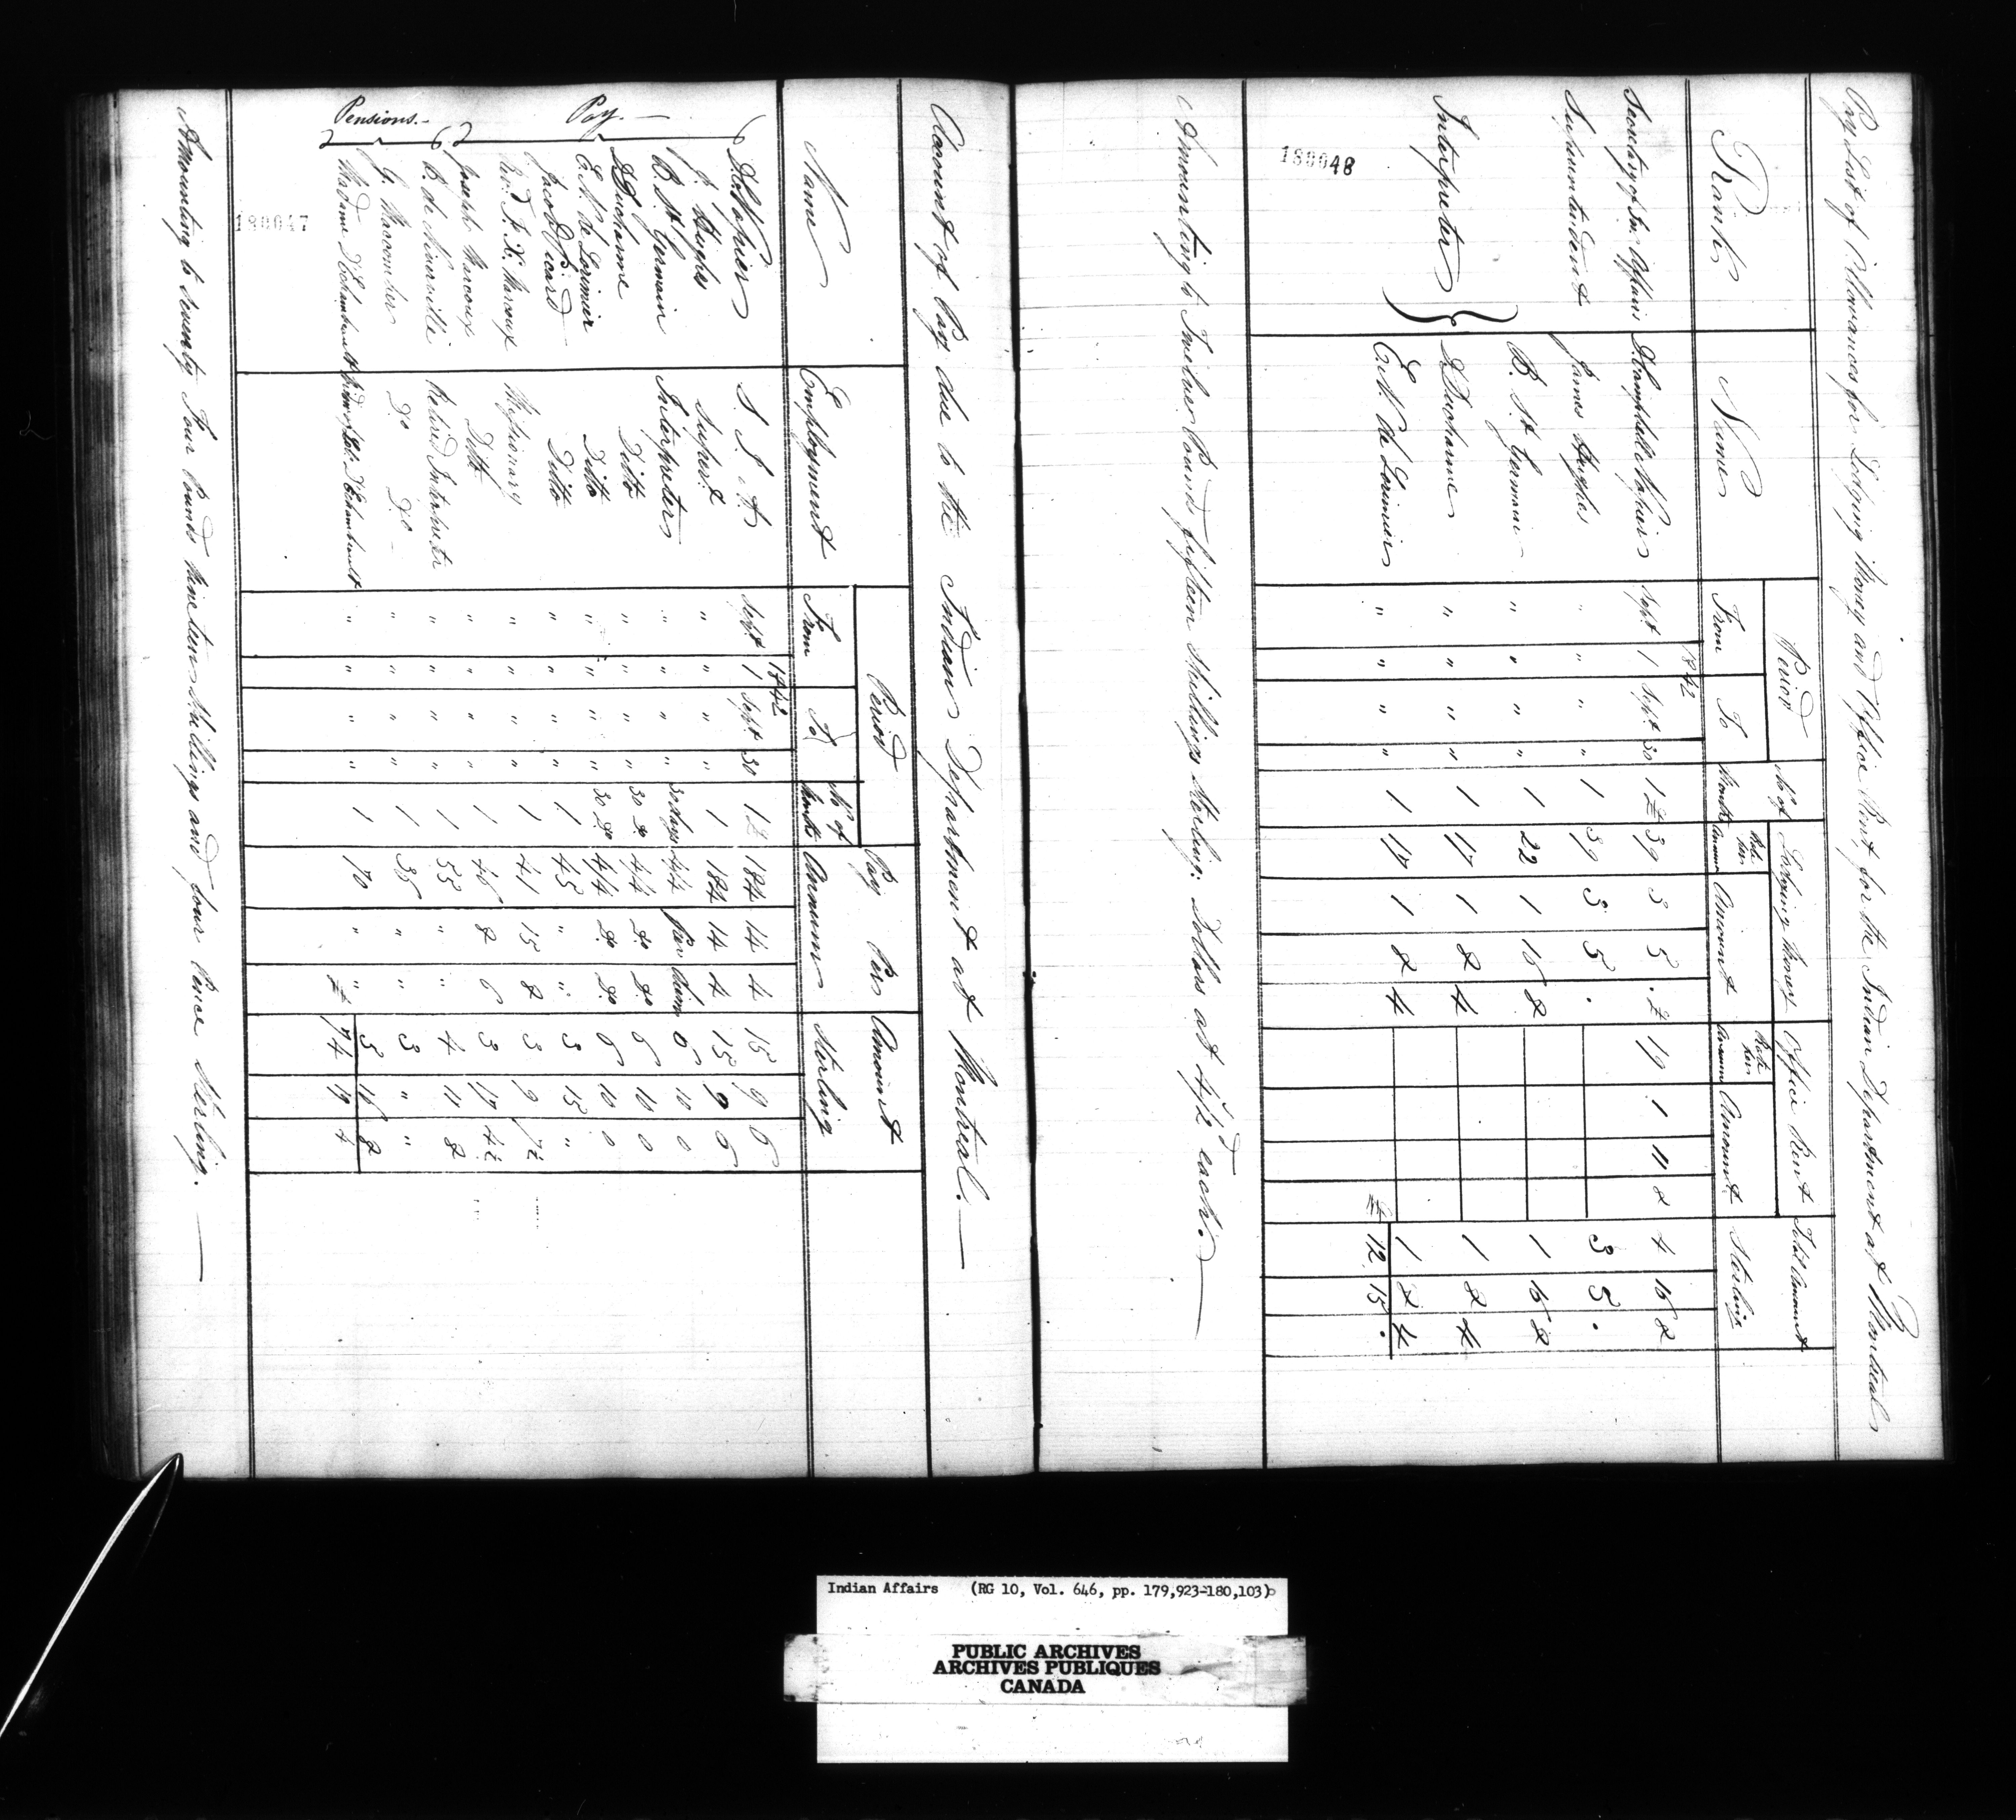 Pay List of Allowances for Lodging Money and Office Rent for the Indian Department at Montreal
Rank Name Period No of Months Lodging Money Office Rent Total Amount Sterling
From To Rate Per Annum Amount Rate Per Annum Amount
1842
Secretary of In: Affairs D. Campbell Napier Sept 1 Sept 30 1 £ 39 3 5 . £ 19 1 11 8 4 16 8
Superintendent James Hughes " " " " 1 39 3 5 . 3 5 .
Interpreter B. St Germain " " " " 1 22 1 16 8 1 16 8
D. Ducharme " " " " 1 17 1 8 4 1 8 4
E. N. de Lorimier " " " " 1 17 1 8 4 1 8 4
£ 12 15 .
180048
Amounting to Twelve Pounds fifteen Shillings Sterling: Dollars at 4/2d each. —
Account of Pay due to the Indian Department at Montreal. —
Name Employment Period No of Months Pay Per Annum Amount Sterling
From To
1842
Pay. —
D. C. Napier S. I. A. Sept 1 Sept 30 1 £ 184 14 4 15 9 6
J. Hughes Supert " " " " 1 184 14 4 15 9 6
B. St Germain Interpreter " " " " 30 days 4/4 per diem 6 10 0
D. Ducharme Ditto " " " " 30 do 4/4 do do 6 10 0
E. N. de Lorimier Ditto " " " " 30 do 4/4 do do 6 10 0
Jacob Picard Ditto " " " " 1 45 " " 3 15 "
Revd F. X. Marcoux Missionary " " " " 1 41 15 8 3 9 7½
Joseph Marcoux Ditto " " " " 1 46 8 6 3 17 4½
Pensions. —
B. de Niverville Retired Interpreter " " " " 1 55 " " 4 11 8
G. Maccomber Do Do " " " " 1 36 " " 3 " "
Madame D'Echambault " " " " 1 70 " " 5 16 8
£ 74 19 4
180047
Amounting to Seventy Four Pounds Nineteen Shillings and four Pence Sterling. —
Indian Affairs (RG 10, Vol. 646, pp. 179,923-180,103)
PUBLIC ARCHIVES
ARCHIVES PUBLIQUES
CANADA